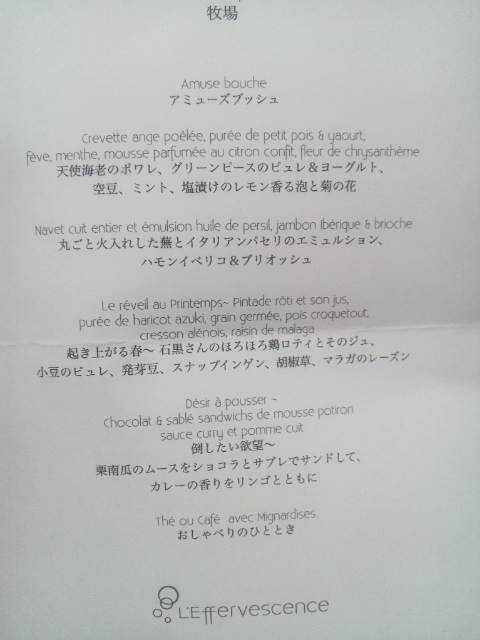 牧場
Amuse bouche
アミューズブッシュ
Crevette ange poêlée, purée de petit pois & yaourt,
fève, menthe, mousse parfumée au citron confit, fleur de chrysanthème
天使海老のポワレ、グリーンピースのピュレ＆ヨーグルト、
空豆、ミント、塩漬けのレモン香る泡と菊の花
Navet cuit entier et émulsion huile de persil, jambon Ibérique & brioche
丸ごと火入れした蕪とイタリアンパセリのエミュルション、
ハモンイベリコ＆ブリオッシュ
Le réveil au Printemps~ Pintade rôti et son jus,
purée de haricot azuki, grain germée, pois croquetout,
cresson alénois, raisin de malaga
起き上がる春～ 石黒さんのほろほろ鶏ロティとそのジュ、
小豆のピュレ、発芽豆、スナップインゲン、胡椒草、マラガのレーズン
Désir à pousser ~
Chocolat & sablé sandwichs de mousse potiron
sauce curry et pomme cuit
倒したい欲望～
栗南瓜のムースをショコラとサブレでサンドして、
カレーの香りをリンゴとともに
Thé ou Café avec Mignardises
おしゃべりのひととき
L'Effervescence